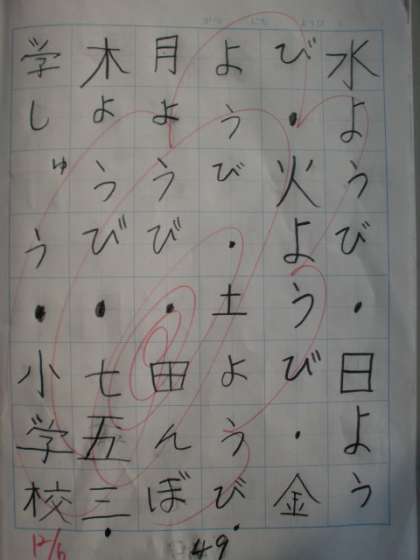 水ようび・日よう
び・火ようび・金
ようび・土ようび・
月ようび・田んぼ
木ようび・七五三・
学しゅう・小学校
49
12/6